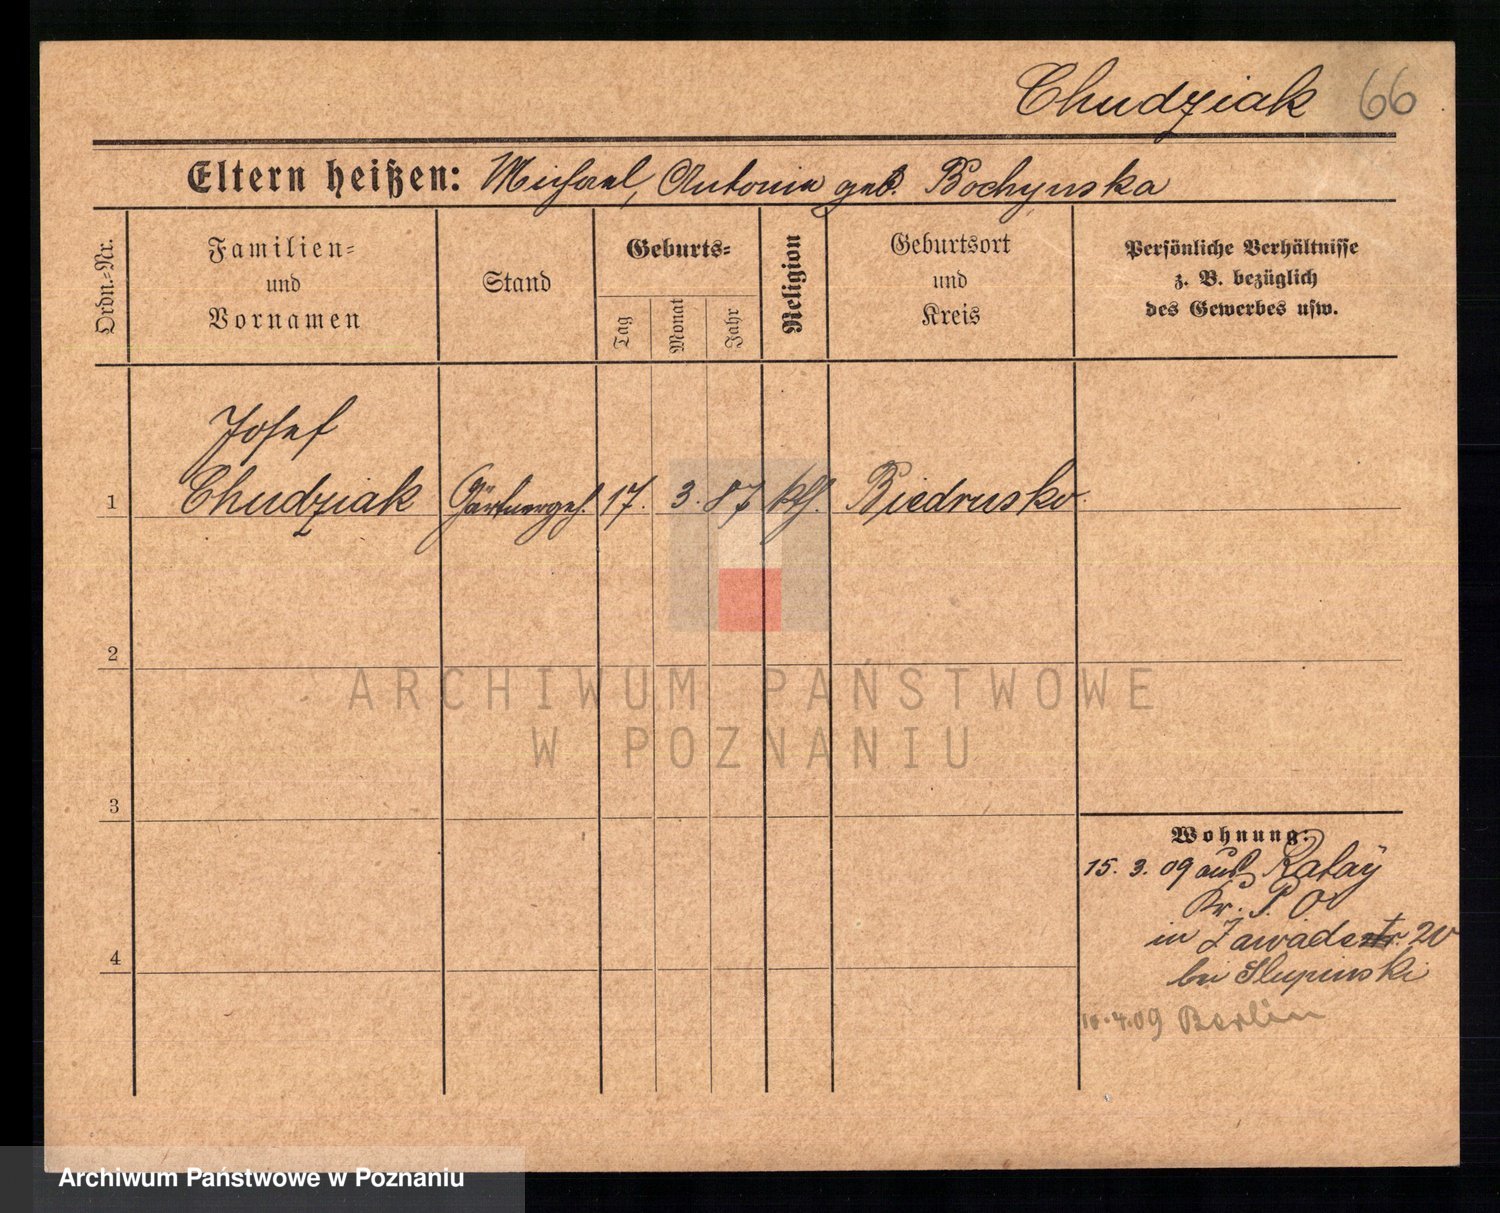 Chudziak 66
Eltern heißen: Michael, Antonia geb. Bochynska
Ordn.=Nr.
Familien=
und
Vornamen
Stand
Geburts=
Tag
Monat
Jahr
Religion
Geburtsort
und
Kreis
Persönliche Verhältnisse
z. B. bezüglich
des Gewerbes usw.
Josef
1 Chudziak Gärtnergeh. 17. 3. 87 kth. Biedrusko.
2
ARCHIWUM PAŃSTWOWE
W POZNANIU
3
Wohnung:
15. 3. 09 aus Rataÿ
Kr. P. O
in Zawadestr. 20
4
bei Slupinski
10.4.09 Berlin
Archiwum Państwowe w Poznaniu